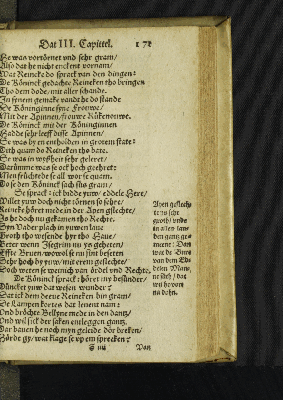 Dat III. Capittel. 171
He was vortörnet vnd sehr gram/
Also dat he nicht enckent vornam/
Wat Reincke do sprack van den dingen:
De Köninck gedachte Reincken tho bringen
Tho dem dode/ mit aller schande.
In synem gemake vandt he do stande
De Könnginne syne Frouwe/
Mit der Apinnen/ frouwe Rükenouwe.
De Köninck mit der Köninginnen
Hadde sehr leeff disse Apinnen/
Se was by en entholden in grotem state:
Dith quam do Reincken tho bate.
Se was in wyßheit sehr geleret/
Darümme was se ock hoch geehret:
Men früchtede se all wor se quam.
Do se den Köninck sach süs gram/
Se sprack: ick bidde yuw/ eddele Here/
Willet yuw doch nicht törnen so sehre/
Reincke höret mede in der Apen slechte/
Is he doch nu gekamen tho Rechte.
Syn Vader plach in yuwen laue
Groth tho wesende hyr tho Haue/
Beter wenn Isegrim nu ys geheten/
Effte Bruen/ wowol se nu sint beseten
Sehr hoch by yuw/ mit erem geslechte/
Doch weten se weinich van ördel vnd Rechte.
De Köninck sprack: höret my besünder/
Düncket yuw dat wesen wunder?
Dat ick dem deeue Reincken bin gram/
De Lampen kortes dat leuent nam:
Vnd bröchte Bellyne mede in den dantz/
Vnd wil sick der saken entleggen gantz.
Dar bauen he noch myn geleide dör breken/
Hörde gy/ wat klage se vp em spreken?
Van
Apen geslech-
te ys sehr
groth/ vnde
in allen lan-
den gantz ge-
mene: Dat